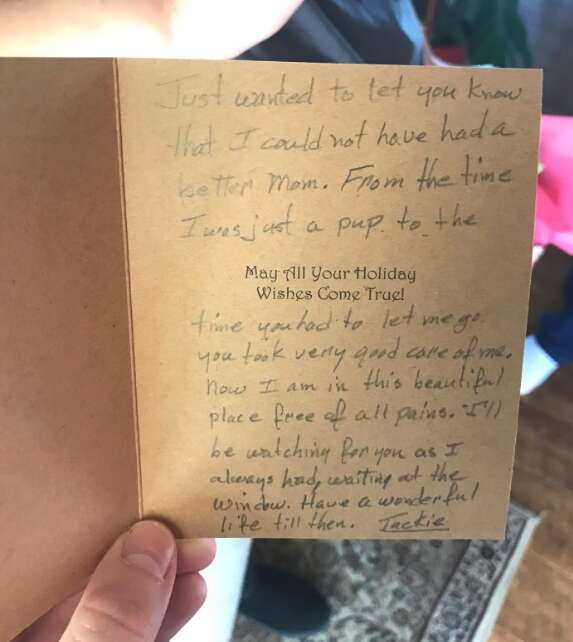 Just wanted to let you know
that I could not have had a
better Mom. From the time
I was just a pup to the
May All Your Holiday
Wishes Come True!
time you had to let me go
you took very good care of me.
Now I am in this beautiful
place free of all pains. I'll
be watching for you as I
always had, waiting at the
window. Have a wonderful
life till then. Jackie